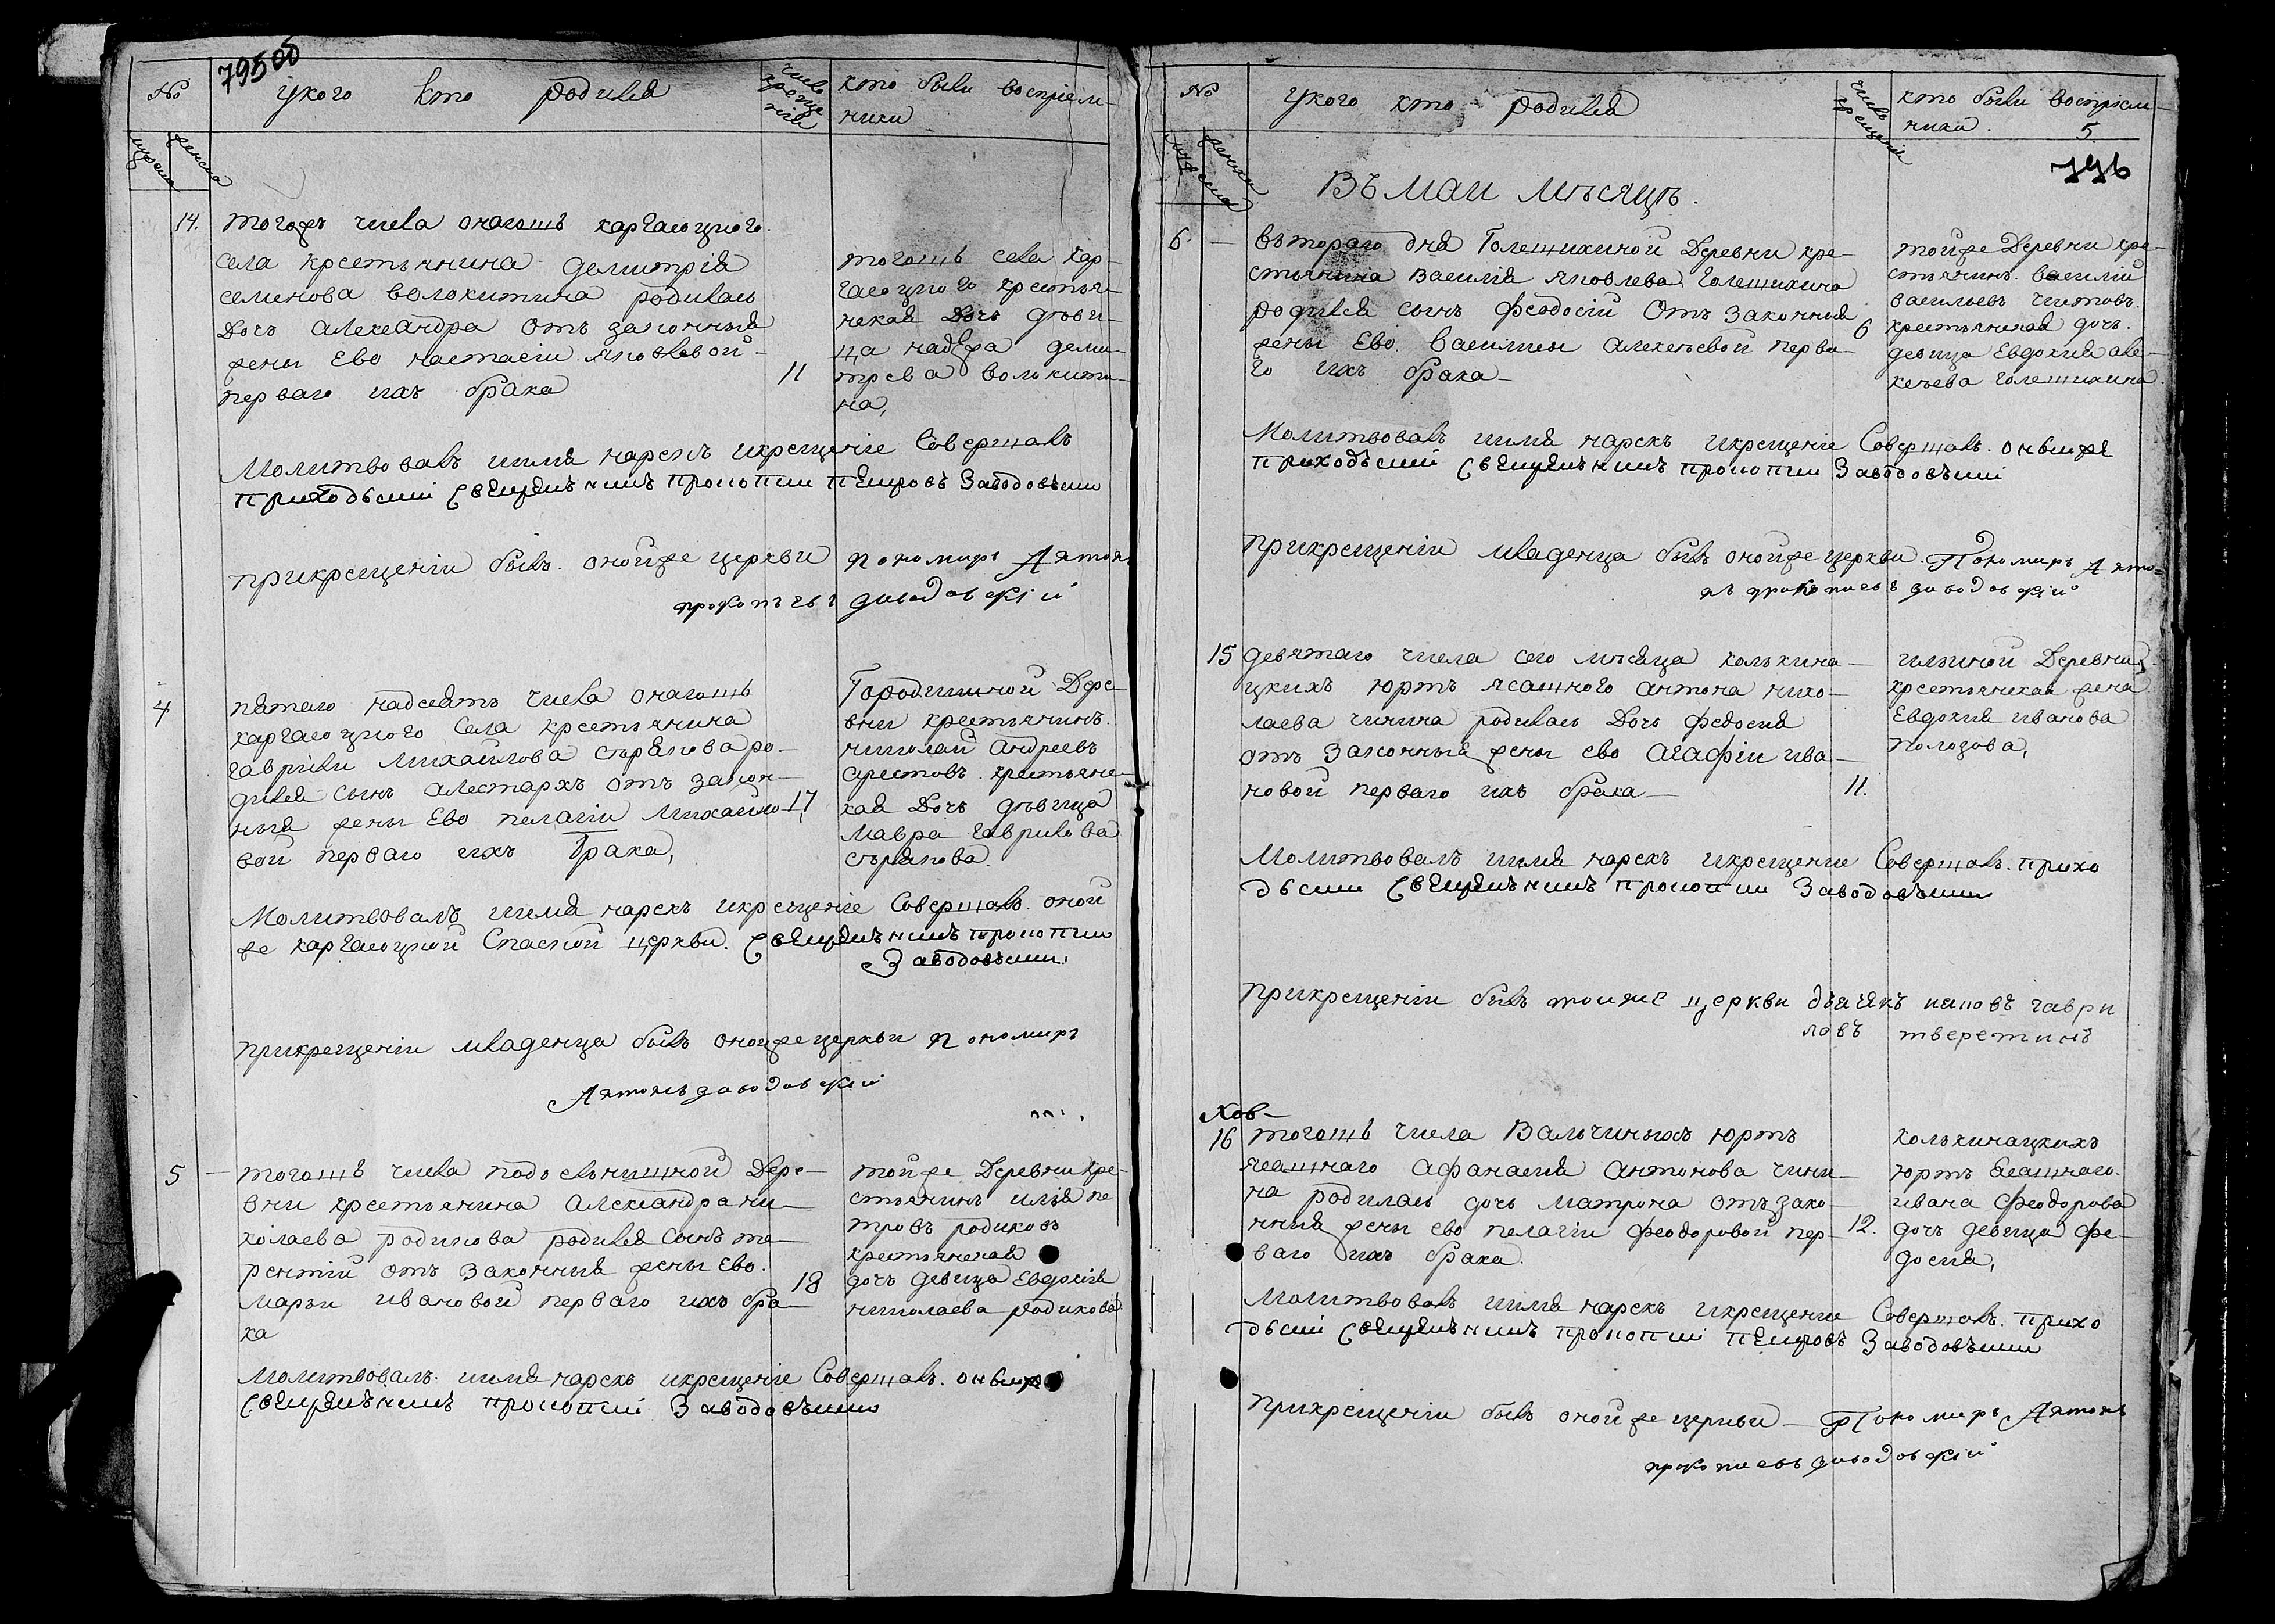 79500
№ укого кто родился число крещенія кто были воспріем-
ники
мужеска женска
14. тогожъ числа онагошъ каргасоцкого
села крестьянина Демитрія
семенова волокитина родилась
Дочь александра отъ законныя
жены Ево настасіи яковлевой
перваго ихъ брака
11
тогошъ села кар-
гасоцкого крестья-
нская Дочь дѣви-
ца надежда деми-
трева волокити-
на,
Молитвовалъ иимя нарекъ икрещеніе Совершалъ
приходьскій Священникъ прокопий петровъ Заводовъский
прикрещеніи былъ онойже церкви пономарь Антонъ
прокопьевъ заводовскій
4 пятаго надсеять числа онагошъ
каргасоцкого Села крестьянина
гаврилы михайлова старялова ро-
дился Сынъ алестархъ отъ закон-
ныя жены Ево пелагіи михайло-
вой перваго ихъ брака,
17
Городищной Дере-
вни крестьянинъ
николай андреевъ
арестовъ крестьянс-
кая Дочь дѣвица
мавра гаврилова
Молитвовалъ иимя нарекъ икрещеніе Совершалъ оной
же каргасоцкой Спаской церкви Священникъ прокопий
Заводовъский
прикрещеніи младенца былъ онойже церкви пономарь
Антонъ заводовскій
5 – тогошъ числа подъельнишной Дере-
вни крестьянина александра ни-
колаева родикова родился Сынъ те-
рентій отъ законныя жены Ево
марьи ивановой перваго ихъ бра-
ка
18
тойже Деревни кре-
стьянинъ илія пе
тровъ родиковъ
крестьянская
дочь девица Евдокія
николаева родикова
Молитвовалъ иимя нарекъ икрещеніе Совершалъ онышже
Священникъ прокопий Заводовъский
№ укого кто родился число крещенія кто были воспріем-
ники. 5
мужеска женска
796
Въ маи мѣсяцѣ.
6. – вътораго дня Голещихиной Деревни кре-
стьянина василія яковлева Голещихина
родился сынъ Феодосій отъ законныя
жены Ево василисы алексеевой перва-
го ихъ брака –
6
тойже Деревни кре-
стьянинъ василий
васильевъ
крестьянская дочь
девица Евдокия але-
ксѣева голещихина
Молитвовалъ иимя нарекъ икрещеніе Совершалъ онышже
приходьский Священникъ прокопий Заводовъский
прикрещеніи младенца былъ онойже церкви Пономарь Анто=
нъ прокопиевъ заводовскій
15 девятаго числа сего мѣсяца колькина-
цкихъ юртъ ясашного антона нико-
лаева чинина родилась Дочь федосия
отъ законныя жены ево агафіи ива-
новой перваго ихъ брака –
11.
ильиной Деревни
крестьянская жена
Евдокия иванова
полозова,
Молитвовалъ иимя нарекъ икрещение Совершалъ прихо
дьский Священникъ прокопий Заводовъский
прикрещеніи былъ тоиже церкви дьячекъ иаковъ гаври
ловъ тверетинъ
16 тогошъ числа Вальчиныхъ юртъ
ясашнаго афанасия антонова чини-
на родилась дочь матрона отъ зако-
нныя жены ево пелагіи феодоровой пер-
ваго ихъ брака.
12.
колькинацкихъ
юртъ ясашнаго
ивана феодорова
дочь девица фе-
досия,
Молитвовалъ иимя нарекъ икрещение Совершалъ прихо
дьский Священникъ прокопий петровъ Заводовъский
прикрещеніи былъ онойже церкви – Пономарь Антонъ
прокопиевъ заводовскій